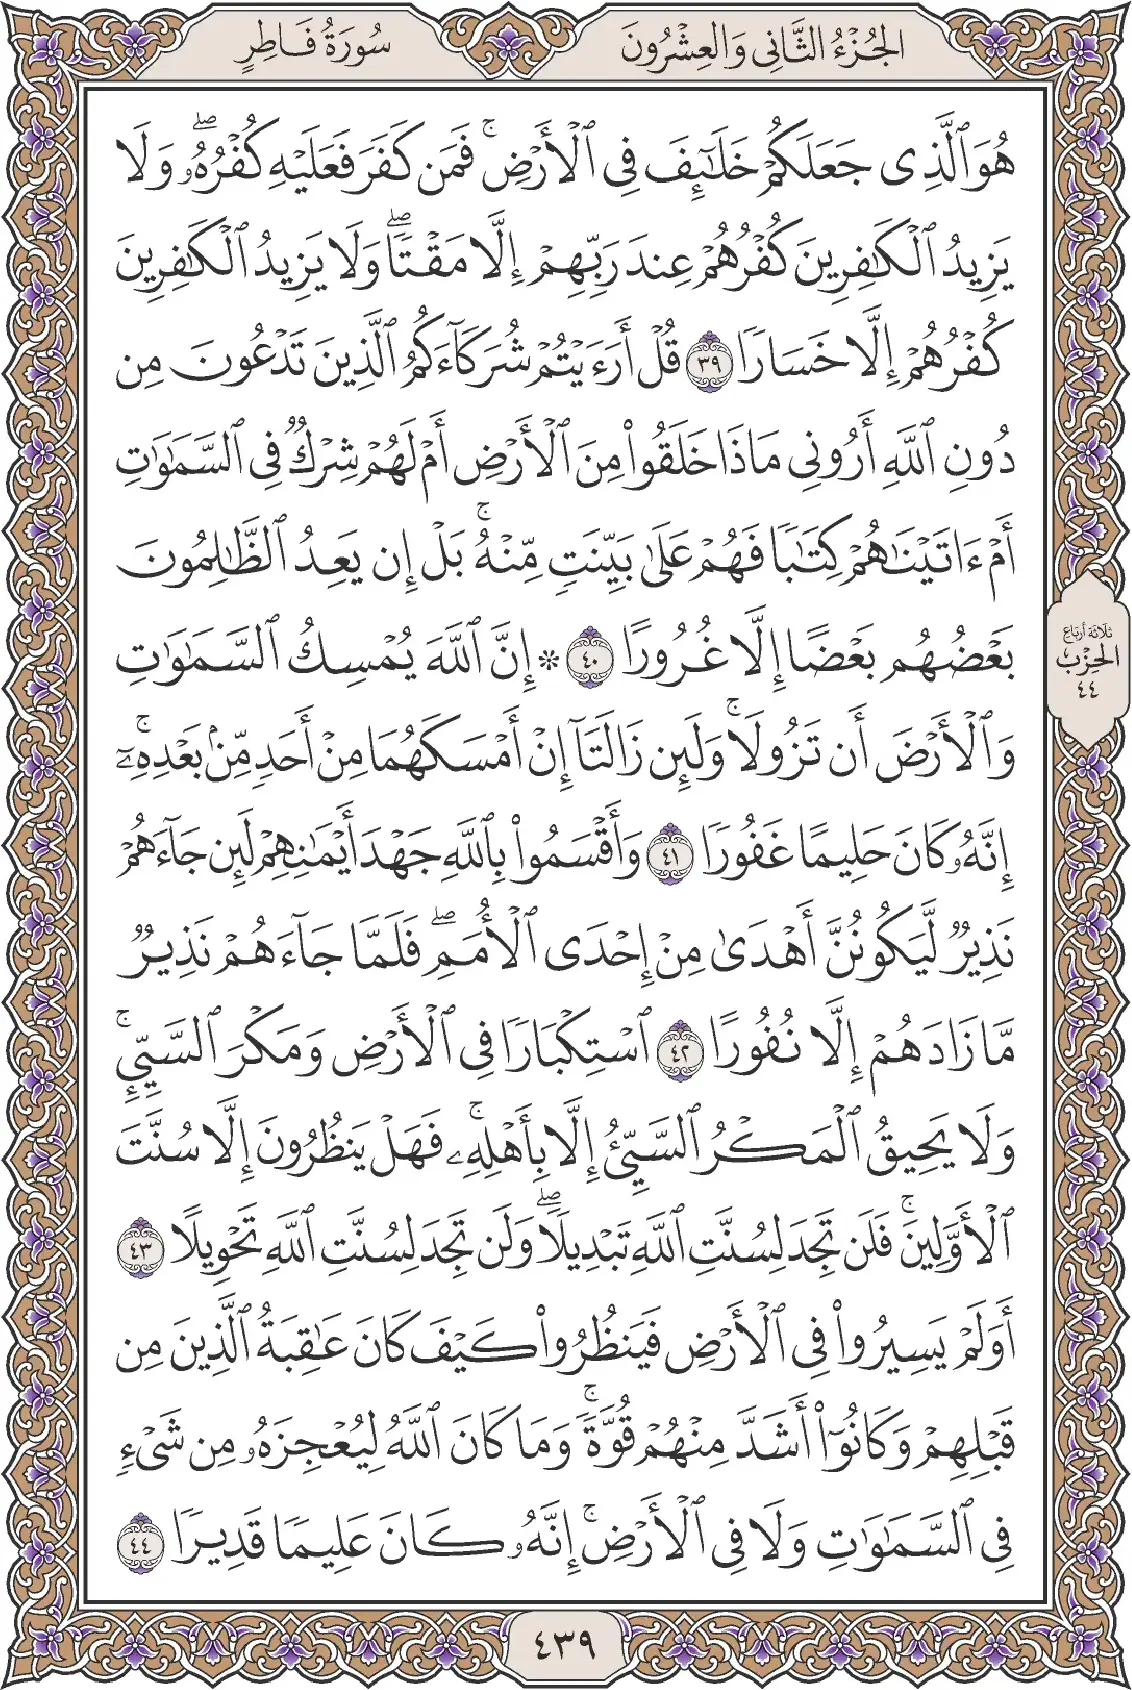 الجُزْءُ الثَّانِي وَالعِشْرُونَ
سُورَةُ فَاطِرٍ
هُوَ ٱلَّذِى جَعَلَكُمْ خَلَـٰٓئِفَ فِى ٱلْأَرْضِ ۚ فَمَن كَفَرَ فَعَلَيْهِ كُفْرُهُۥ ۖ وَلَا
يَزِيدُ ٱلْكَـٰفِرِينَ كُفْرُهُمْ عِندَ رَبِّهِمْ إِلَّا مَقْتًا ۖ وَلَا يَزِيدُ ٱلْكَـٰفِرِينَ
كُفْرُهُمْ إِلَّا خَسَارًا ٣٩ قُلْ أَرَءَيْتُمْ شُرَكَآءَكُمُ ٱلَّذِينَ تَدْعُونَ مِن
دُونِ ٱللَّهِ أَرُونِى مَاذَا خَلَقُوا۟ مِنَ ٱلْأَرْضِ أَمْ لَهُمْ شِرْكٌ فِى ٱلسَّمَـٰوَٰتِ
أَمْ ءَاتَيْنَـٰهُمْ كِتَـٰبًا فَهُمْ عَلَىٰ بَيِّنَتٍ مِّنْهُ ۚ بَلْ إِن يَعِدُ ٱلظَّـٰلِمُونَ
بَعْضُهُم بَعْضًا إِلَّا غُرُورًا ٤٠ ۞ إِنَّ ٱللَّهَ يُمْسِكُ ٱلسَّمَـٰوَٰتِ
وَٱلْأَرْضَ أَن تَزُولَا ۚ وَلَئِن زَالَتَآ إِنْ أَمْسَكَهُمَا مِنْ أَحَدٍ مِّنۢ بَعْدِهِۦٓ ۚ
إِنَّهُۥ كَانَ حَلِيمًا غَفُورًا ٤١ وَأَقْسَمُوا۟ بِٱللَّهِ جَهْدَ أَيْمَـٰنِهِمْ لَئِن جَآءَهُمْ
نَذِيرٌ لَّيَكُونُنَّ أَهْدَىٰ مِنْ إِحْدَى ٱلْأُمَمِ ۖ فَلَمَّا جَآءَهُمْ نَذِيرٌ
مَّا زَادَهُمْ إِلَّا نُفُورًا ٤٢ ٱسْتِكْبَارًا فِى ٱلْأَرْضِ وَمَكْرَ ٱلسَّيِّئِ ۚ
وَلَا يَحِيقُ ٱلْمَكْرُ ٱلسَّيِّئُ إِلَّا بِأَهْلِهِۦ ۚ فَهَلْ يَنظُرُونَ إِلَّا سُنَّتَ
ٱلْأَوَّلِينَ ۚ فَلَن تَجِدَ لِسُنَّتِ ٱللَّهِ تَبْدِيلًا ۖ وَلَن تَجِدَ لِسُنَّتِ ٱللَّهِ تَحْوِيلًا ٤٣
أَوَلَمْ يَسِيرُوا۟ فِى ٱلْأَرْضِ فَيَنظُرُوا۟ كَيْفَ كَانَ عَـٰقِبَةُ ٱلَّذِينَ مِن
قَبْلِهِمْ وَكَانُوٓا۟ أَشَدَّ مِنْهُمْ قُوَّةً ۚ وَمَا كَانَ ٱللَّهُ لِيُعْجِزَهُۥ مِن شَىْءٍ
فِى ٱلسَّمَـٰوَٰتِ وَلَا فِى ٱلْأَرْضِ ۚ إِنَّهُۥ كَانَ عَلِيمًا قَدِيرًا ٤٤
ثَلَاثَة أَربَاع
الحِزْب
٤٤
٤٣٩